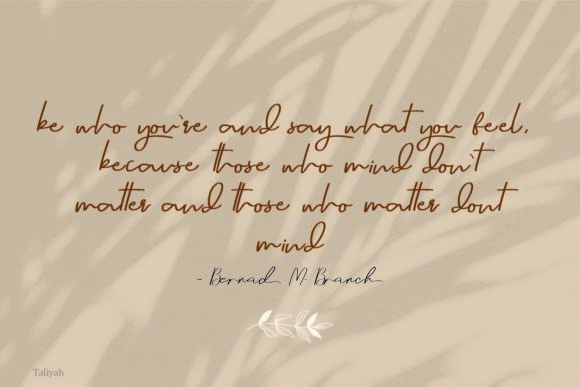 be who you're and say what you feel,
because those who mind don't
matter and those who matter dont
mind
- Bernad M. Branch
Taliyah